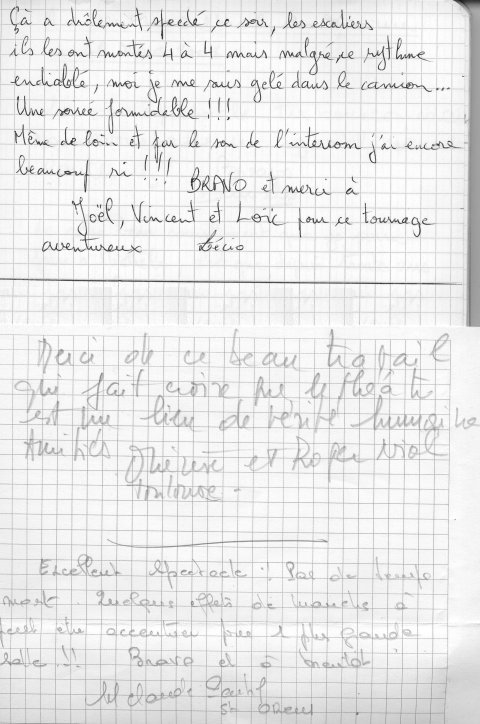 çà a drôlement speedé ce soir, les escaliers
ils les ont montés 4 à 4 mais malgré ce rythme
endiablé, moi je me suis gelé dans le camion...
Une soirée formidable !!!
Même de loin et par le son de l'intercom j'ai encore
beaucoup ri !!! BRAVO et merci à
Joël, Vincent et Loïc pour ce tournage
aventureux Lécio
Merci de ce beau travail
qui fait croire que le théâtre
est un lieu de vérité humaine
Amitiés Thérèse et Roger
Toulouse -
Excellent spectacle ! Pas de temps
mort. Quelques effets de manche à
peut être accentuer pour 1 plus grande
salle !!! Bravo et à bientôt
M Claude
St Orens